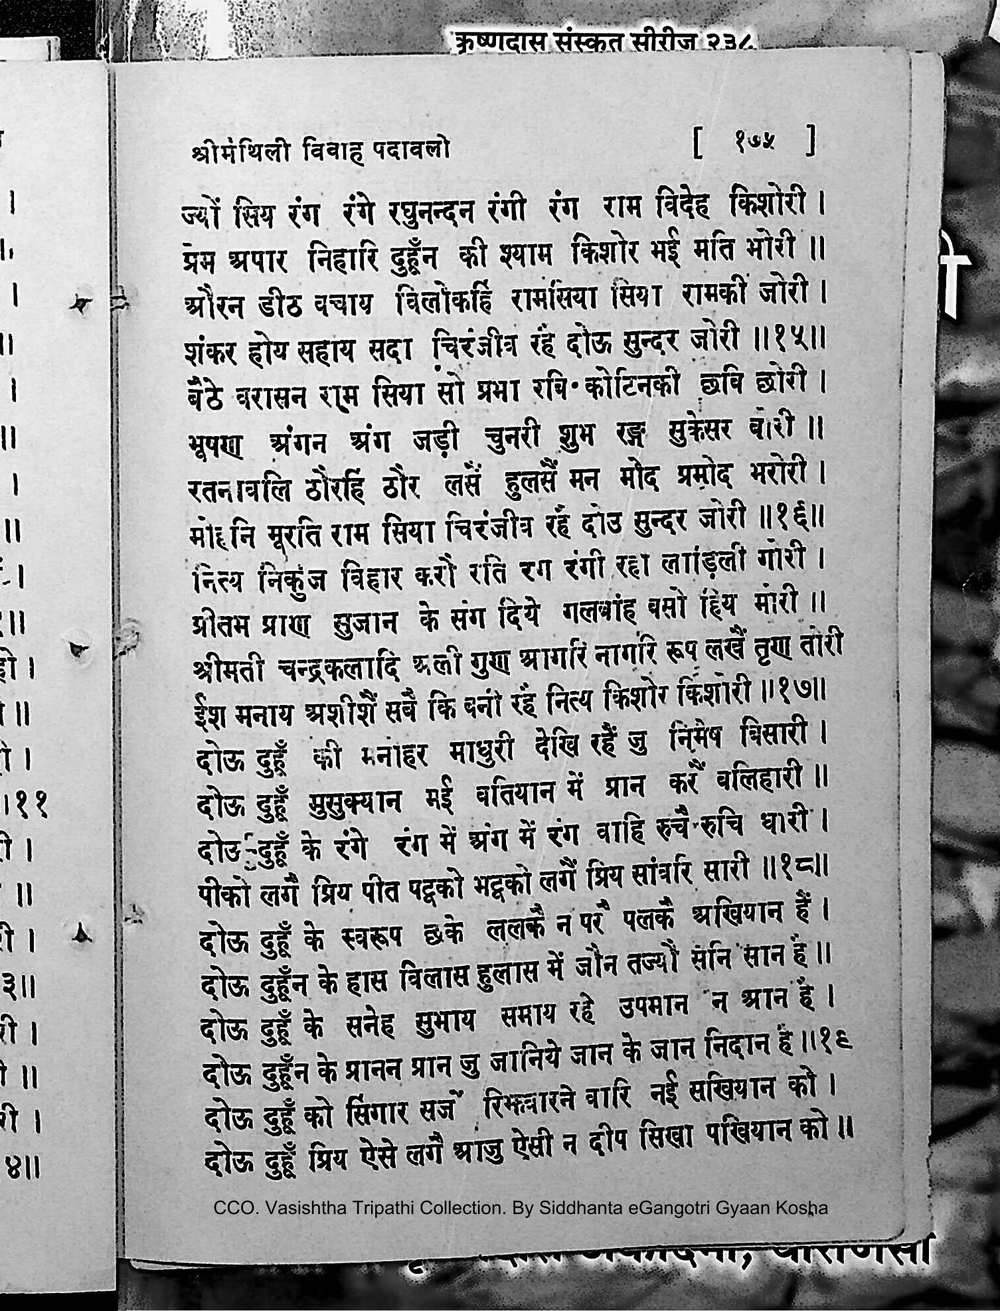 कृष्णदास संस्कृत सीरीज २३८
श्रीमैथिली विवाह पदावली [ १७५ ]
ज्यों सिय रंग रंगे रघुनन्दन रंगी रंग राम विदेह किशोरी ।
प्रेम अपार निहारि दुहूँन की श्याम किशोर भई मति भोरी ॥
औरन डीठ वचाय विलोकहिं रामसिया सिया रामकी जोरी ।
शंकर होय सहाय सदा चिरंजीव रहैं दोऊ सुन्दर जोरी ॥१५॥
बैठे वरासन राम सिया सो प्रभा रवि कोटिनकी छवि छोरी ।
भूषण अंगन अंग जड़ी चुनरी शुभ रङ्ग सुकेसर बोरी ॥
रतनावलि ठौरहिं ठौर लसैं हुलसैं मन मोद प्रमोद भरोरी ।
मोहनि मूरति राम सिया चिरंजीव रहैं दोउ सुन्दर जोरी ॥१६॥
नित्य निकुंज विहार करौ रति रंग रंगी रहा लाड़िली गोरी ।
प्रीतम प्राण सुजान के संग दिये गलबांह बसो हिय मोरी ॥
श्रीमती चन्द्रकलादि अली गुण आगरि नागरि रूप लखैं तृण तोरी
ईश मनाय अशीशैं सबै कि बनी रहैं नित्य किशोर किशोरी ॥१७॥
दोऊ दुहूँ की मनोहर माधुरी देखि रहैं जु निमेष बिसारी ।
दोऊ दुहूँ मुसुक्यान मई बतियान में प्रान करैं बलिहारी ॥
दोउ दुहूँ के रंगे रंग में अंग में रंग वाहि रुचै रुचि धारी ।
पीको लगै प्रिय पीत पटुको भटुको लगैं प्रिय सांवरि सारी ॥१८॥
दोऊ दुहूँ के स्वरूप छके ललकै न परै पलकै अखियान हैं ।
दोऊ दुहूँन के हास विलास हुलास में जौन तज्यौ सनि सान है ॥
दोऊ दुहूँ के सनेह सुभाय समाय रहे उपमान न आन है ।
दोऊ दुहूँन के प्रानन प्रान जु जानिये जान के जान निदान है ॥१९
दोऊ दुहूँ को सिंगार सजैं रिझवारने वारि नई सखियान को ।
दोऊ दुहूँ प्रिय ऐसे लगै आजु ऐसी न दीप सिखा पखियान को ॥
CCO. Vasishtha Tripathi Collection. By Siddhanta eGangotri Gyaan Kosha